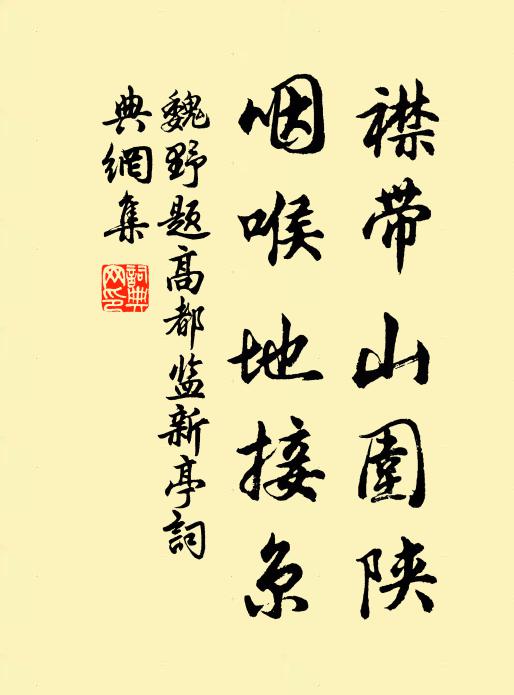 襟带山圍陕
咽喉地接京
魏野题高都监新亭詞
典網集
詞典
网印